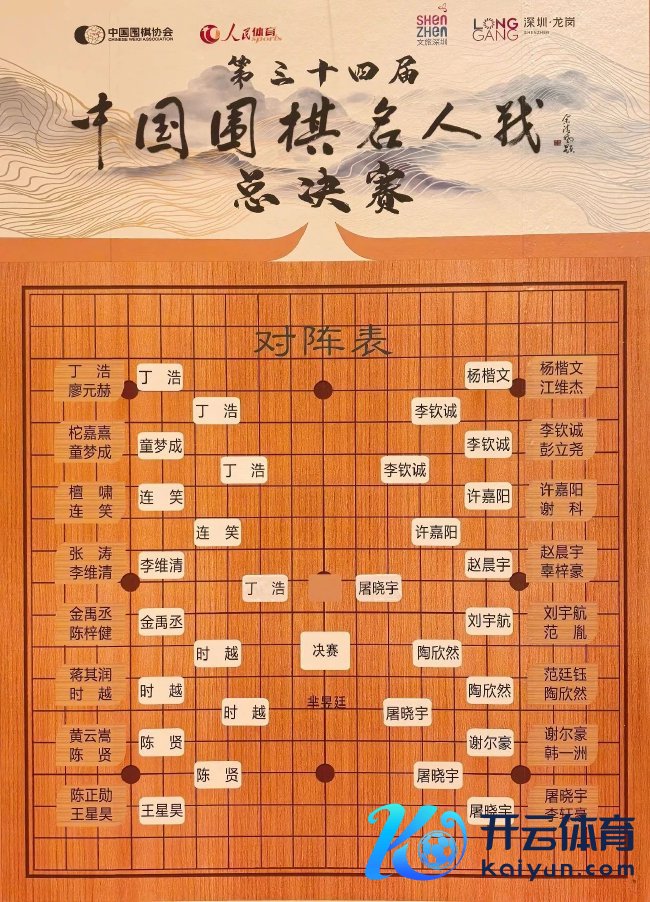 中国围棋协会
CHINESE WEIQI ASSOCIATION
人民体育
sports
SHEN
ZHEN
文旅深圳
LONG
GANG
深圳·龙岗
SHENZHEN
第三十四届
中国围棋名人战
总决赛
对阵表
丁浩
廖元赫
丁浩
杨楷文
杨楷文
江维杰
丁浩
李钦诚
柁嘉熹
童梦成
童梦成
李钦诚
李钦诚
彭立尧
丁浩
李钦诚
檀啸
连笑
连笑
许嘉阳
许嘉阳
谢科
连笑
许嘉阳
张涛
李维清
李维清
赵晨宇
赵晨宇
辜梓豪
丁浩
屠晓宇
金禹丞
陈梓健
金禹丞
刘宇航
刘宇航
范胤
决赛
时越
陶欣然
蒋其润
时越
时越
陶欣然
范廷钰
陶欣然
芈昱廷
时越
屠晓宇
黄云嵩
陈贤
陈贤
谢尔豪
谢尔豪
韩一洲
陈贤
屠晓宇
陈正勋
王星昊
王星昊
屠晓宇
屠晓宇
李轩豪
开云体育
kaiyun.com